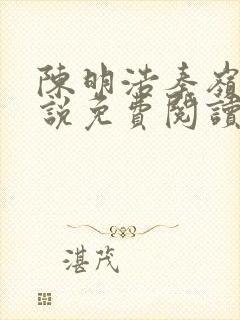 陳明浩秦嶺
說免費閱讀
湛茂